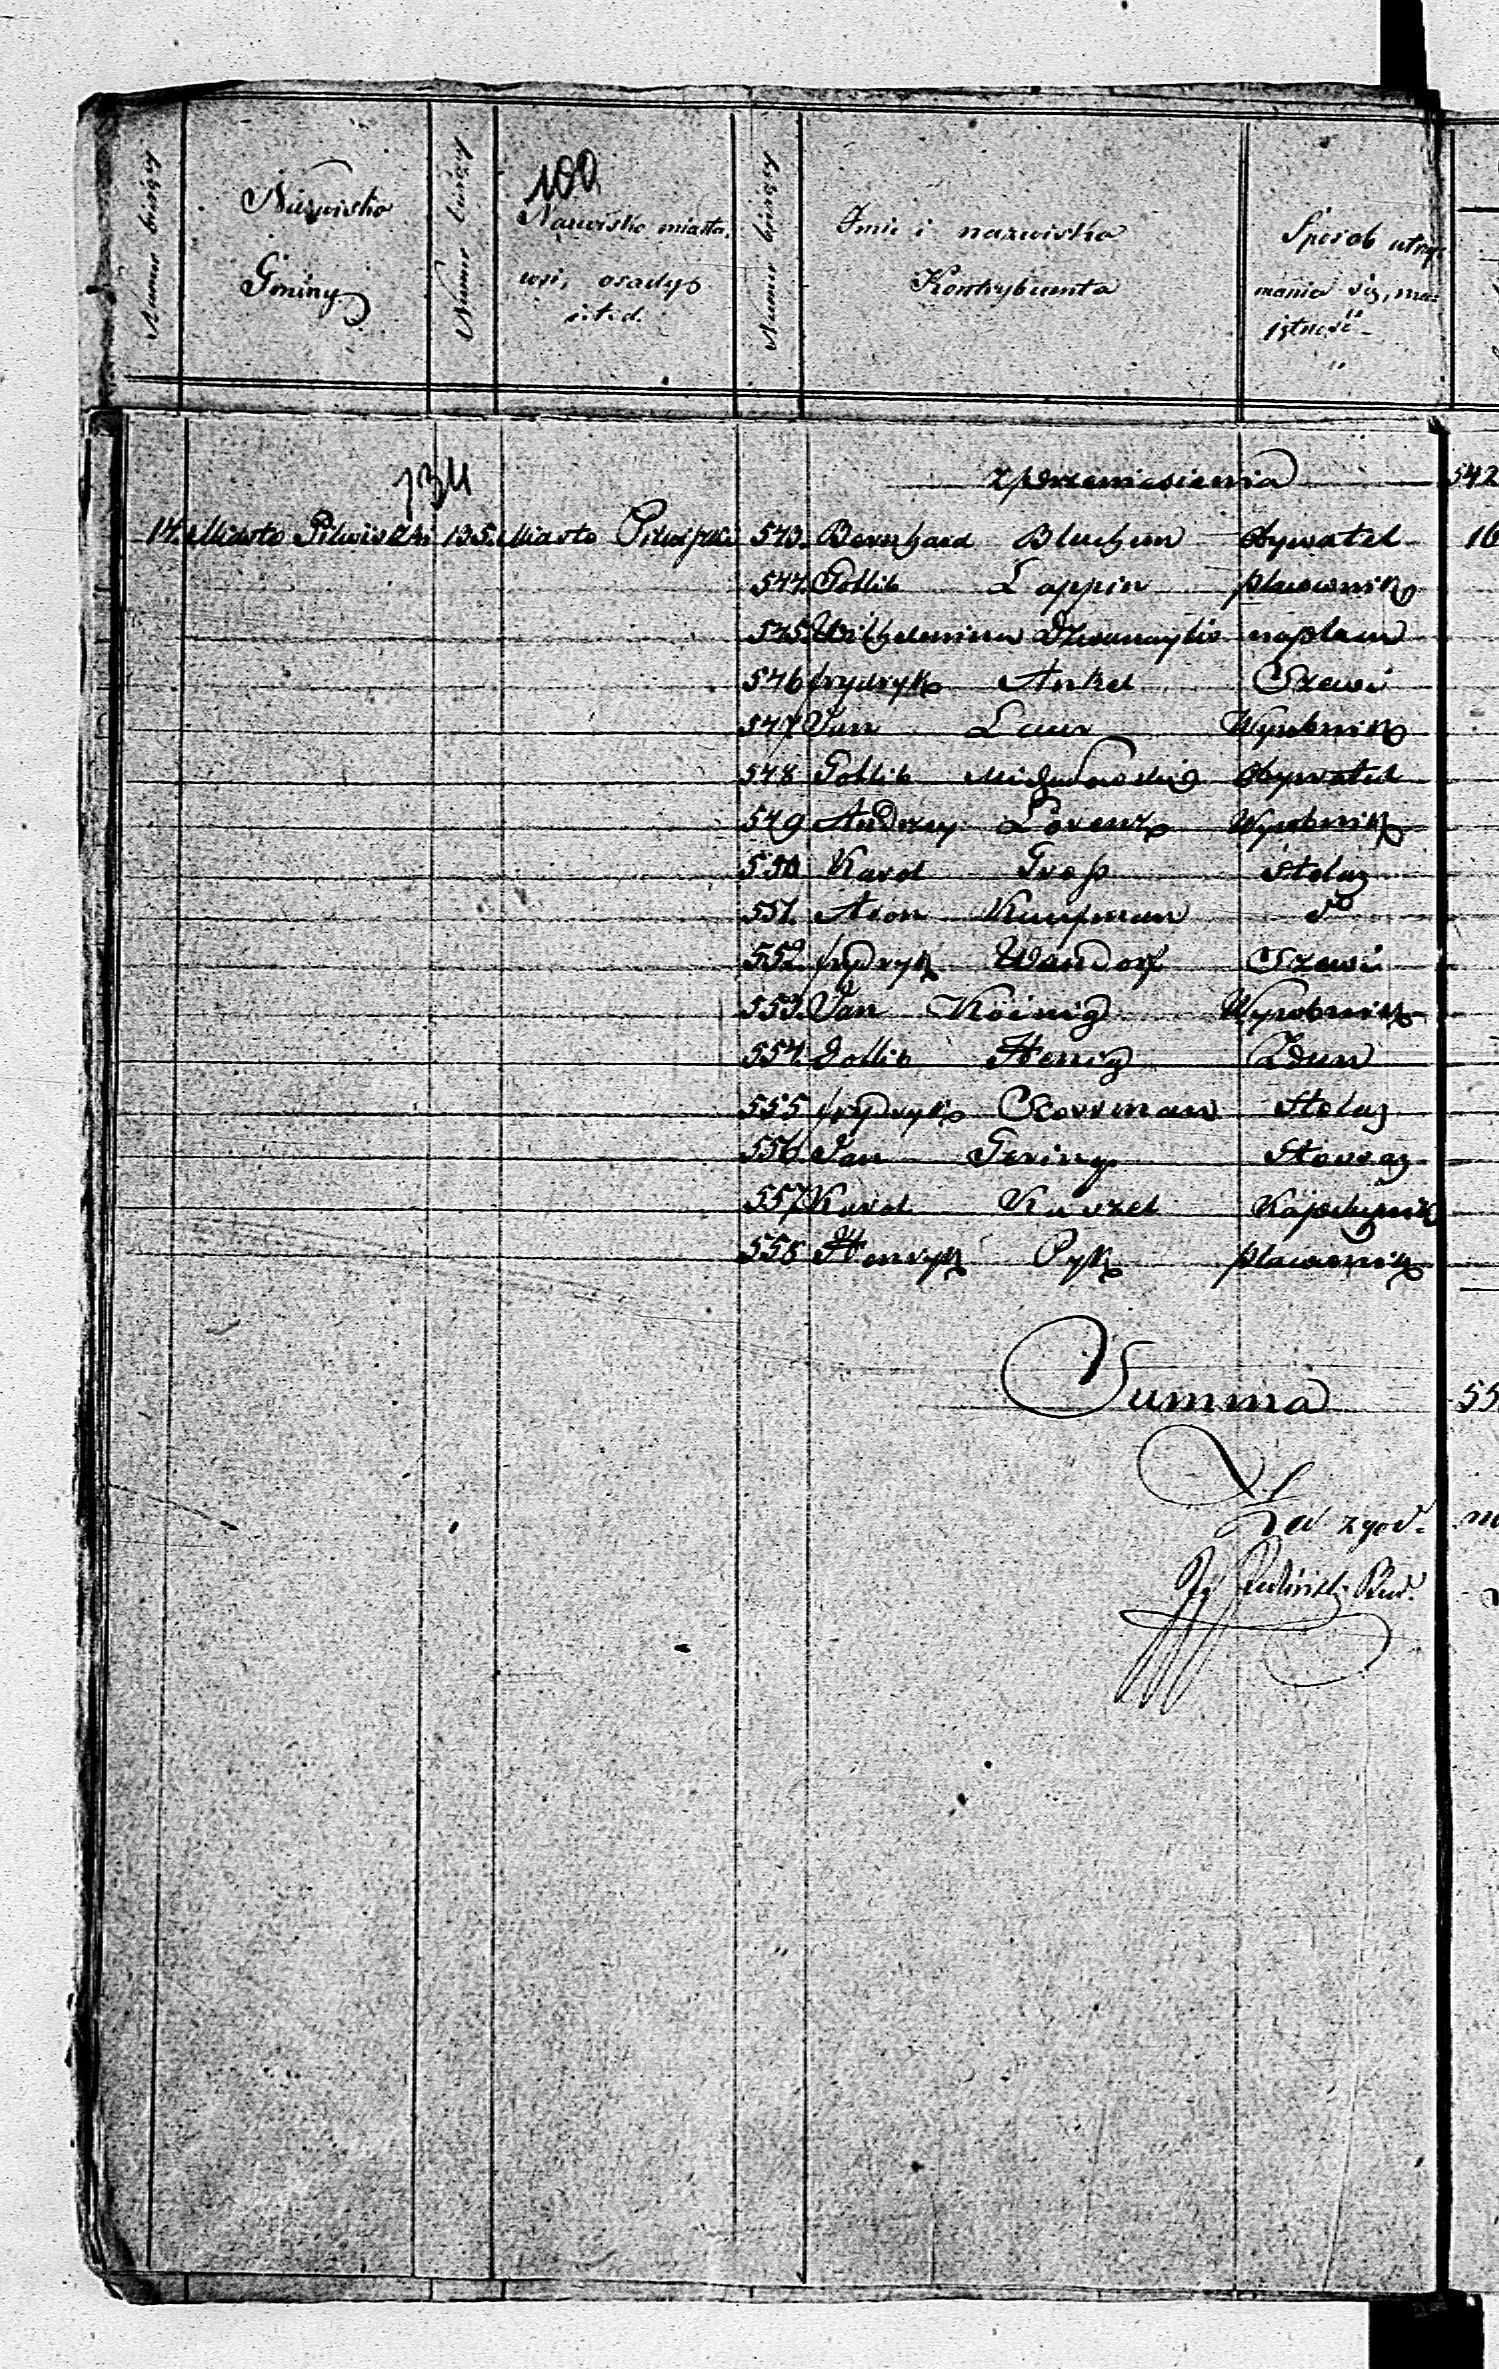 100
Numer bieżący
Nazwisko Gminy
Numer bieżący
Nazwisko miasta, wsi, osady, i.t.d.
Numer bieżący
Imie i nazwisko Kontrybuenta
Sposób utrzymania się, majętność
z przeniesienia 542
134
14. Miasto Pilwiszki 135. Miasto Pilwiszki 543. Bernhard Bluhm Obywatel 16
544. Gotlib Lappin pławownik
545. Wilhelmina na placu
546 frydryk Ankel Szewc
547 Jan Laur Wyrobnik
548 Gotlib Obywatel
549 Andrzey Lorenz Wyrobnik
550 Karol Groß Stolarz
551. Aron Kaufman do
552. frydryk Wandorf Szewc
553. Jan Köinig Wyrobnik
554. Gotlib Henig Zdun
555 frydryk Szorman Stolarz
556. Jan Gering
557 Karol Karzel
558 Henryk Pyk pławownik
Summa 55
Za zgod.